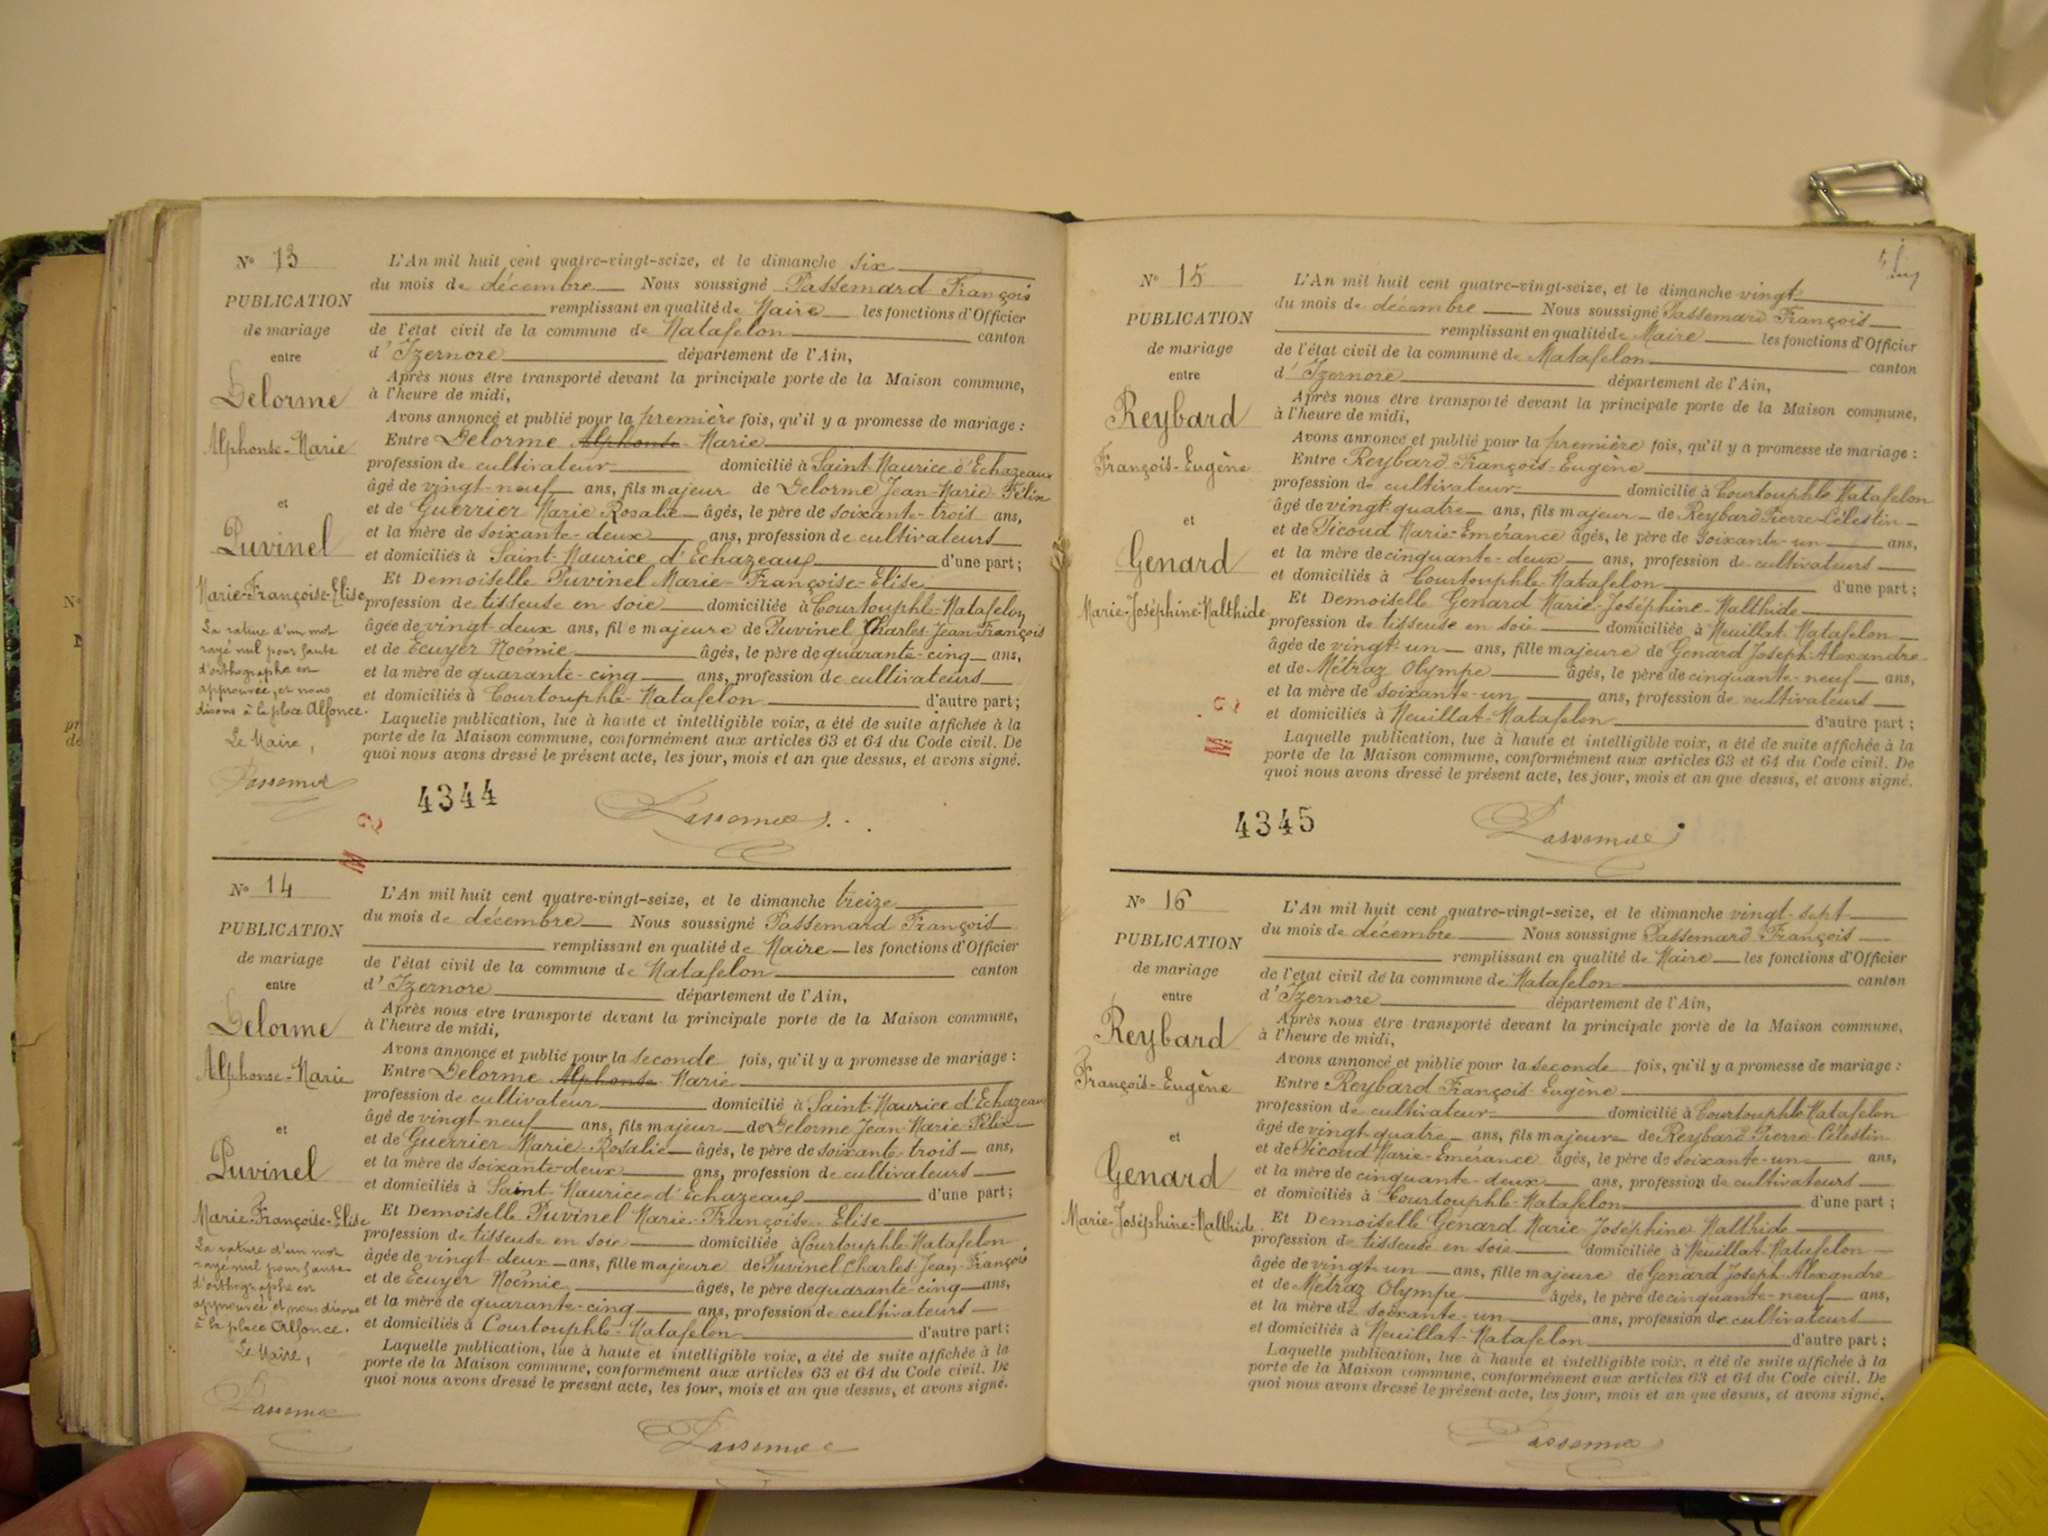 N° 13
PUBLICATION
de mariage
entre
Delorme
Alphonse-Marie
et
Puvinel
Marie-Françoise-Elise
La rature d'un mot
rayé nul pour faute
d'orthographe est
approuvée, et nous
disons à la place Alfonce.
Le Maire,
L'An mil huit cent quatre-vingt-seize, et le dimanche six
du mois de décembre Nous soussigné Passemard François
remplissant en qualité de Maire les fonctions d'Officier
de l'état civil de la commune de Matafelon canton
d'Izernore département de l'Ain,
Après nous être transporté devant la principale porte de la Maison commune,
à l'heure de midi,
Avons annoncé et publié pour la première fois, qu'il y a promesse de mariage :
Entre Delorme Alphonse Marie
profession de cultivateur domicilié à Saint-Maurice d'Echazeaux
âgé de vingt-neuf ans, fils majeur de Delorme Jean-Marie-Félix
et de Guerrier Marie Rosalie âgés, le père de soixante-trois ans,
et la mère de soixante-deux ans, profession de cultivateurs
et domiciliés à Saint-Maurice d'Echazeaux d'une part ;
Et Demoiselle Puvinel Marie-Françoise-Elise
profession de tisseuse en soie domiciliée à Courtouphle-Matafelon
âgée de vingt-deux ans, fille majeure de Puvinel Charles Jean François
et de Ecuyer Noémie âgés, le père de quarante-cinq ans,
et la mère de quarante-cinq ans, profession de cultivateurs
et domiciliés à Courtouphle-Matafelon d'autre part ;
Laquelle publication, lue à haute et intelligible voix, a été de suite affichée à la
porte de la Maison commune, conformément aux articles 63 et 64 du Code civil. De
quoi nous avons dressé le présent acte, les jour, mois et an que dessus, et avons signé.
4344
N° 14
PUBLICATION
de mariage
entre
Delorme
Alphonse-Marie
et
Puvinel
Marie-Françoise-Elise
La rature d'un mot
rayé nul pour faute
d'orthographe est
approuvée et nous disons
à la place Alfonce.
Le Maire,
L'An mil huit cent quatre-vingt-seize, et le dimanche treize
du mois de décembre Nous soussigné Passemard François
remplissant en qualité de Maire les fonctions d'Officier
de l'état civil de la commune de Matafelon canton
d'Izernore département de l'Ain,
Après nous être transporté devant la principale porte de la Maison commune,
à l'heure de midi,
Avons annoncé et publié pour la seconde fois, qu'il y a promesse de mariage :
Entre Delorme Alphonse Marie
profession de cultivateur domicilié à Saint-Maurice d'Echazeaux
âgé de vingt-neuf ans, fils majeur de Delorme Jean-Marie-Félix
et de Guerrier Marie-Rosalie âgés, le père de soixante-trois ans,
et la mère de soixante-deux ans, profession de cultivateurs
et domiciliés à Saint-Maurice d'Echazeaux d'une part ;
Et Demoiselle Puvinel Marie-Françoise-Elise
profession de tisseuse en soie domiciliée à Courtouphle-Matafelon
âgée de vingt-deux ans, fille majeure de Puvinel Charles-Jean-François
et de Ecuyer Noémie âgés, le père de quarante-cinq ans,
et la mère de quarante-cinq ans, profession de cultivateurs
et domiciliés à Courtouphle-Matafelon d'autre part ;
Laquelle publication, lue à haute et intelligible voix, a été de suite affichée à la
porte de la Maison commune, conformément aux articles 63 et 64 du Code civil. De
quoi nous avons dressé le présent acte, les jour, mois et an que dessus, et avons signé.
N° 15
PUBLICATION
de mariage
entre
Reybard
François-Eugène
et
Genard
Marie-Joséphine-Malthide
L'An mil huit cent quatre-vingt-seize, et le dimanche vingt
du mois de décembre Nous soussigné Passemard François
remplissant en qualité de Maire les fonctions d'Officier
de l'état civil de la commune de Matafelon canton
d'Izernore département de l'Ain,
Après nous être transporté devant la principale porte de la Maison commune,
à l'heure de midi,
Avons annoncé et publié pour la première fois, qu'il y a promesse de mariage :
Entre Reybard François-Eugène
profession de cultivateur domicilié à Courtouphle Matafelon
âgé de vingt-quatre ans, fils majeur de Reybard Pierre-Célestin
et de Picoud Marie-Emérance âgés, le père de soixante-un ans,
et la mère de cinquante-deux ans, profession de cultivateurs
et domiciliés à Courtouphle-Matafelon d'une part ;
Et Demoiselle Genard Marie-Joséphine-Malthide
profession de tisseuse en soie domiciliée à Heuillat-Matafelon
âgée de vingt-un ans, fille majeure de Genard Joseph-Alexandre
et de Métraz Olympe âgés, le père de cinquante-neuf ans,
et la mère de soixante-un ans, profession de cultivateurs
et domiciliés à Heuillat-Matafelon d'autre part ;
Laquelle publication, lue à haute et intelligible voix, a été de suite affichée à la
porte de la Maison commune, conformément aux articles 63 et 64 du Code civil. De
quoi nous avons dressé le présent acte, les jour, mois et an que dessus, et avons signé.
4345
N° 16
PUBLICATION
de mariage
entre
Reybard
François-Eugène
et
Genard
Marie-Joséphine-Malthide
L'An mil huit cent quatre-vingt-seize, et le dimanche vingt-sept
du mois de décembre Nous soussigné Passemard François
remplissant en qualité de Maire les fonctions d'Officier
de l'état civil de la commune de Matafelon canton
d'Izernore département de l'Ain,
Après nous être transporté devant la principale porte de la Maison commune,
à l'heure de midi,
Avons annoncé et publié pour la seconde fois, qu'il y a promesse de mariage :
Entre Reybard François-Eugène
profession de cultivateur domicilié à Courtouphle Matafelon
âgé de vingt-quatre ans, fils majeur de Reybard Pierre-Célestin
et de Picoud Marie-Emérance âgés, le père de soixante-un ans,
et la mère de cinquante-deux ans, profession de cultivateurs
et domiciliés à Courtouphle-Matafelon d'une part ;
Et Demoiselle Genard Marie Joséphine Malthide
profession de tisseuse en soie domiciliée à Heuillat-Matafelon
âgée de vingt-un ans, fille majeure de Genard Joseph Alexandre
et de Métraz Olympe âgés, le père de cinquante-neuf ans,
et la mère de soixante-un ans, profession de cultivateurs
et domiciliés à Heuillat-Matafelon d'autre part ;
Laquelle publication, lue à haute et intelligible voix, a été de suite affichée à la
porte de la Maison commune, conformément aux articles 63 et 64 du Code civil. De
quoi nous avons dressé le présent acte, les jour, mois et an que dessus, et avons signé.